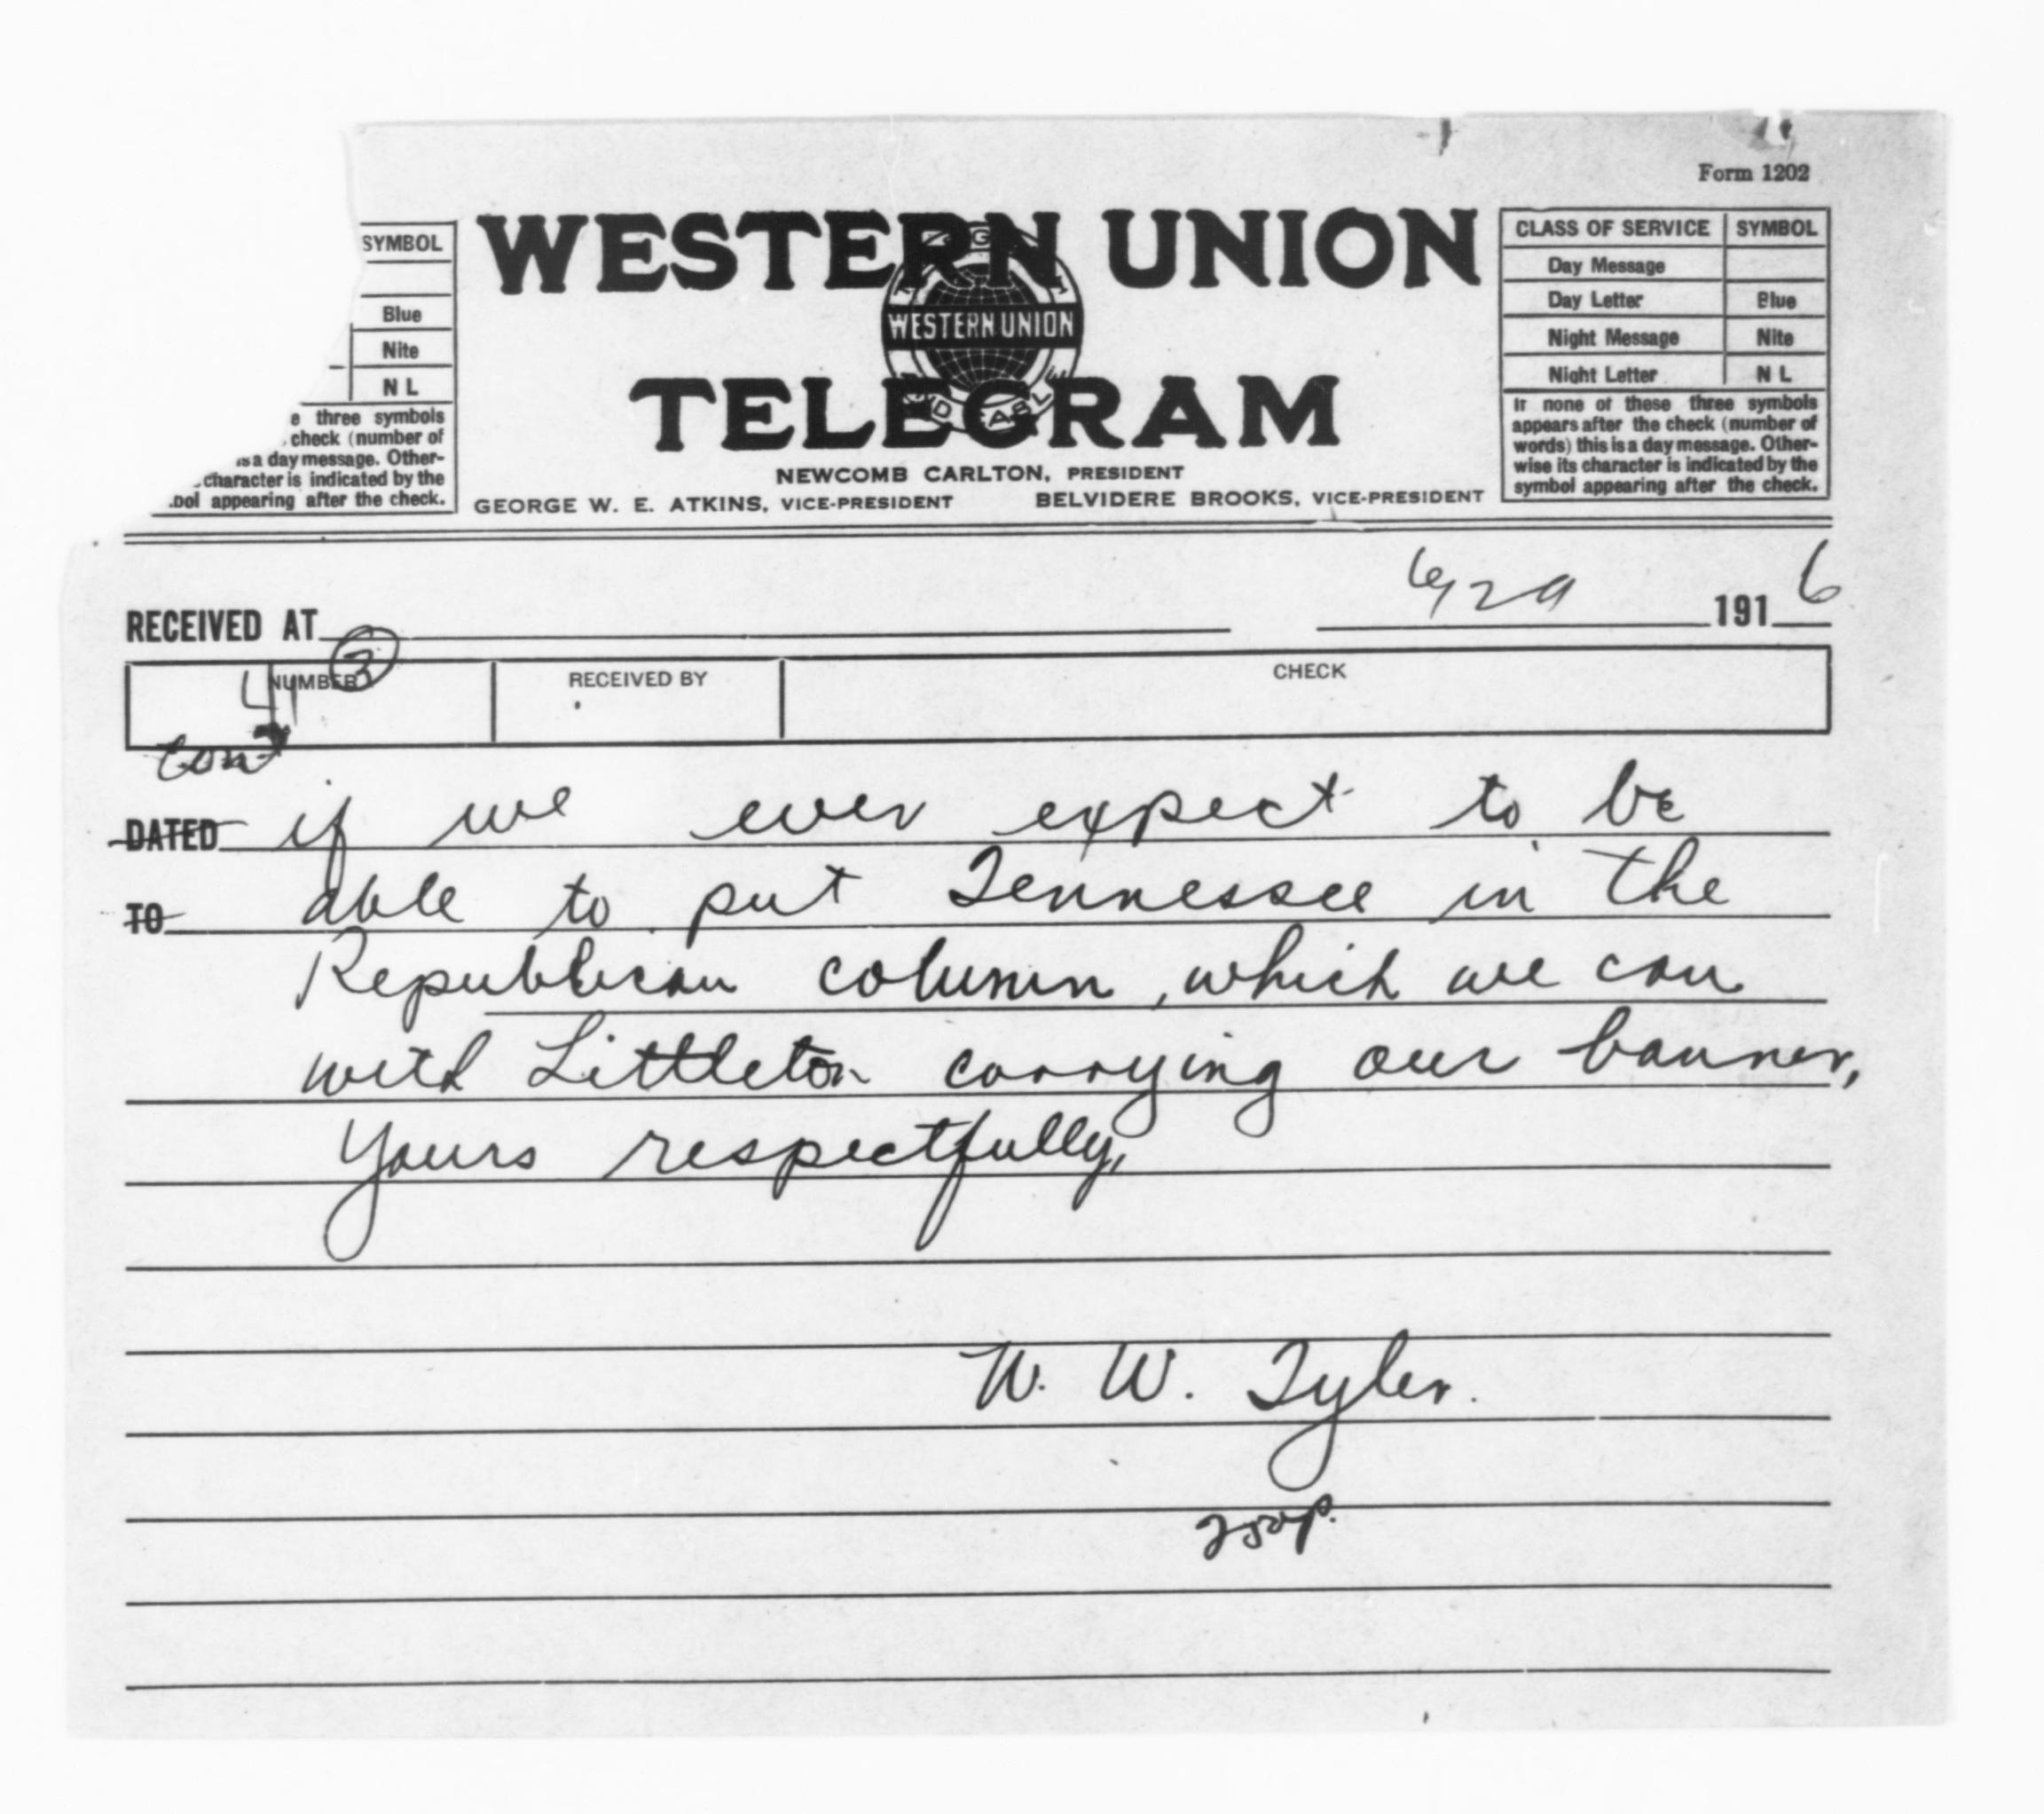 Form 1202
SYMBOL
Blue
Nite
N L
e three symbols
check (number of
is a day message. Other-
character is indicated by the
bol appearing after the check.
WESTERN UNION
WESTERN UNION
TELEGRAM
NEWCOMB CARLTON, PRESIDENT
GEORGE W. E. ATKINS, VICE-PRESIDENT BELVIDERE BROOKS, VICE-PRESIDENT
CLASS OF SERVICE SYMBOL
Day Message
Day Letter Blue
Night Message Nite
Night Letter N L
If none of these three symbols
appears after the check (number of
words) this is a day message. Other-
wise its character is indicated by the
symbol appearing after the check.
RECEIVED AT 6/29 1916
3
41 NUMBER RECEIVED BY CHECK
DATED if we ever expect to be
TO able to put Tennessee in the
Republican column, which we can
with Littleton carrying our banner,
Yours respectfully,
W. W. Tyler.
250p.